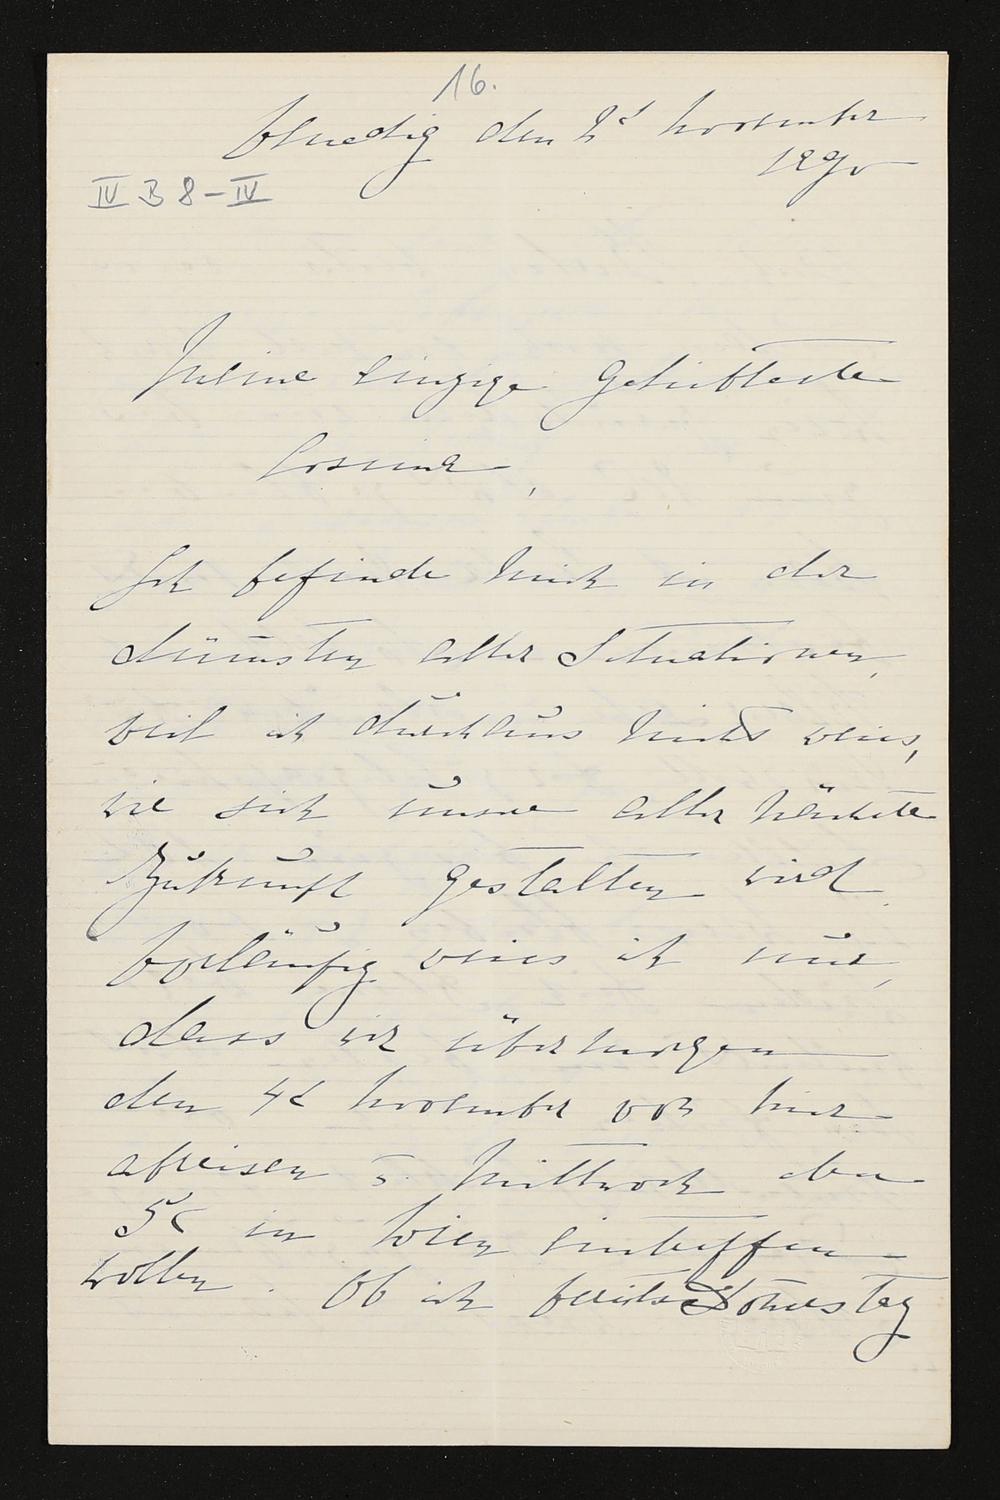 16.
Venedig den 2t November
1890
IV B 8 – IV
Meine einzige Geliebteste
Cosima,
Ich befinde mich in der
dümsten aller Situationen,
weil ich durchaus nicht weis,
wie sich unsere aller nächste
Zukunft gestalten wird.
Vorläufig weis ich nur,
dass wir übermorgen
den 4t November von hier
abreisen u. Mittwoch den
5t in Wien eintreffen
wollen. Ob ich bereits Donerstag